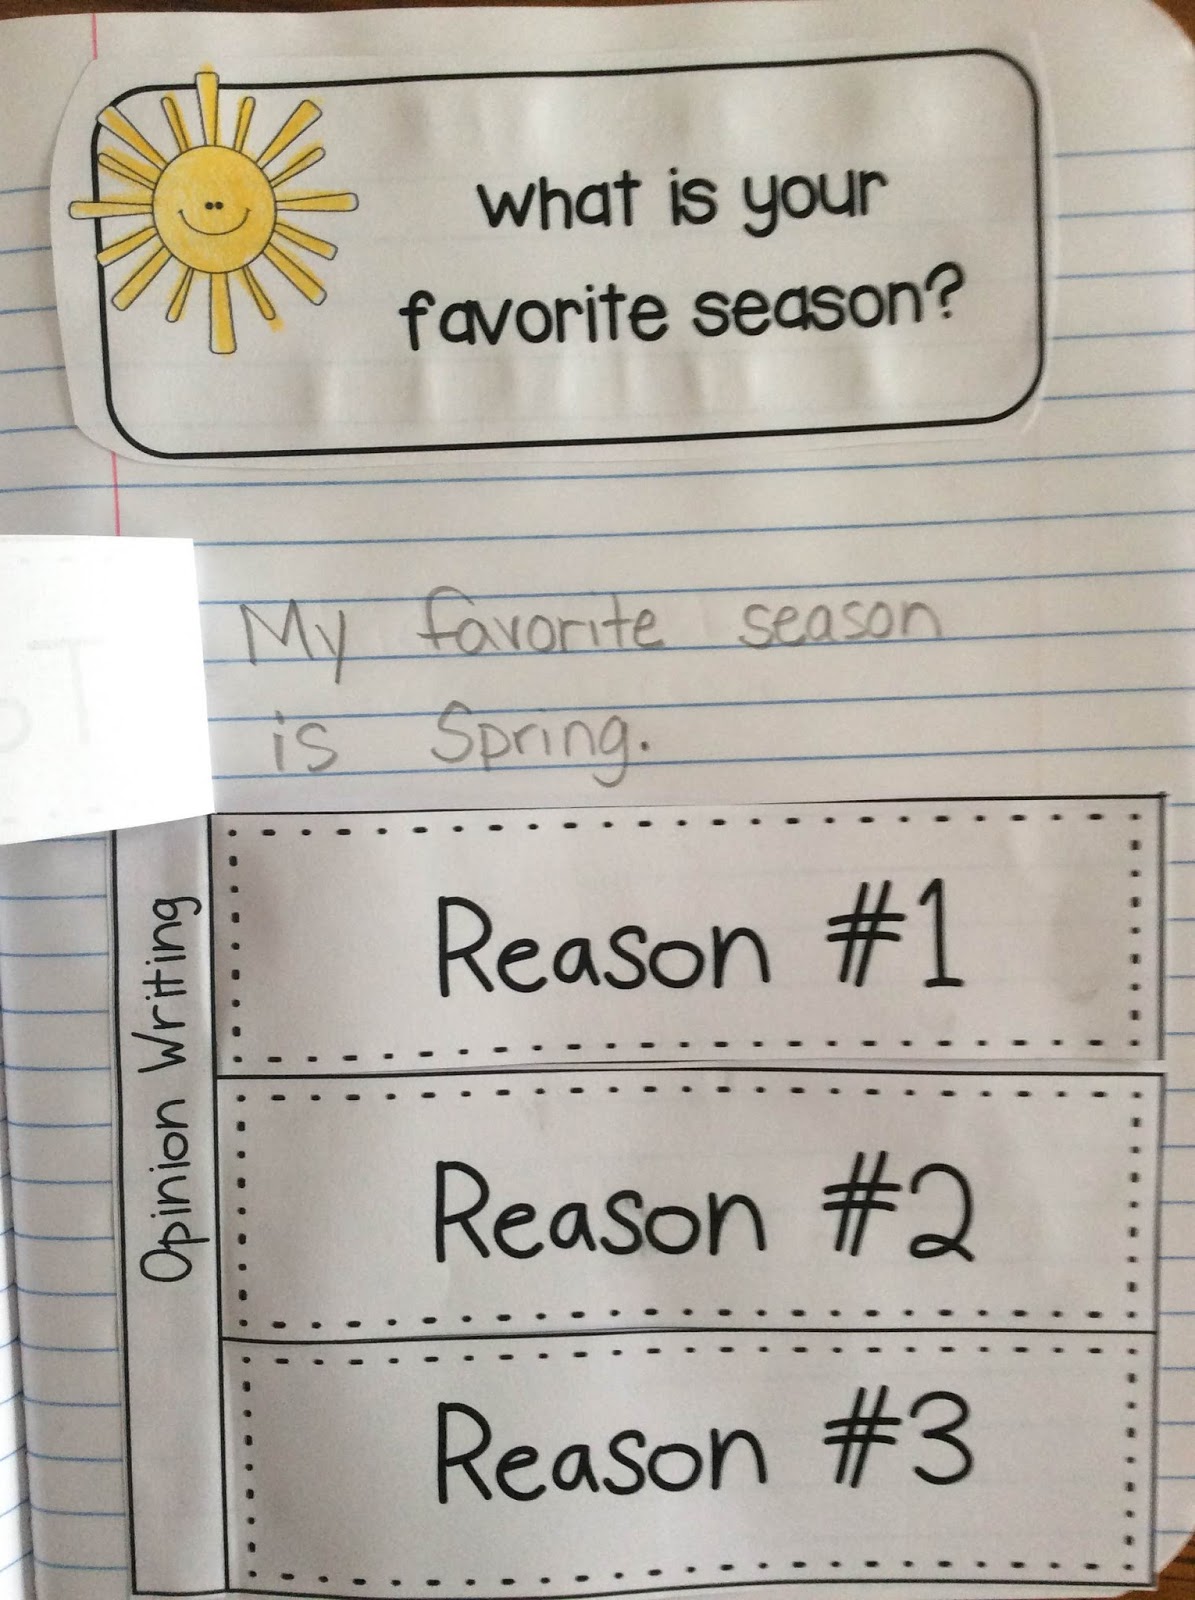 What is your
favorite season?
My favorite season
is Spring.
Opinion Writing
Reason #1
Reason #2
Reason #3